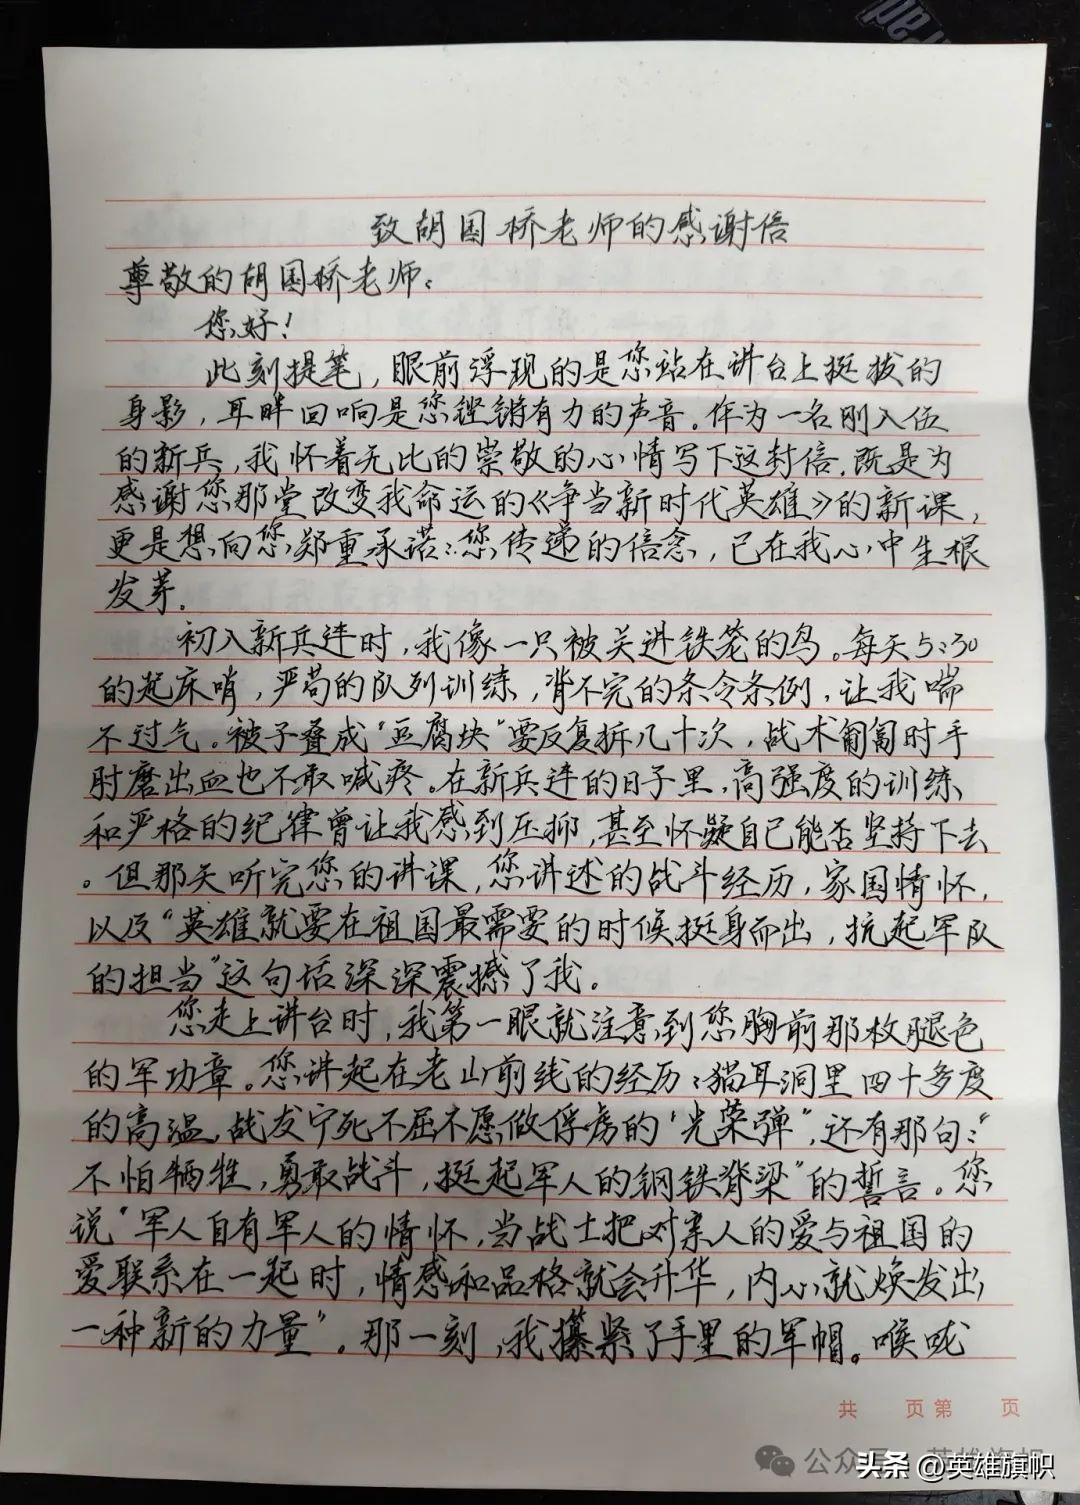 致胡国桥老师的感谢信
尊敬的胡国桥老师:
您好!
此刻提笔,眼前浮现的是您站在讲台上挺拔的
身影,耳畔回响是您铿锵有力的声音。作为一名刚入伍
的新兵,我怀着无比的崇敬的心情写下这封信,既是为
感谢您那堂改变我命运的《争当新时代英雄》的新课,
更是想向您郑重承诺:您传递的信念,已在我心中生根
发芽。
初入新兵连时,我像一只被关进铁笼的鸟。每天5:30
的起床哨,严苛的队列训练,背不完的条令条例,让我喘
不过气。被子叠成“豆腐块”要反复拆几十次,战术匍匐时手
肘磨出血也不敢喊疼。在新兵连的日子里,高强度的训练
和严格的纪律曾让我感到压抑,甚至怀疑自己能否坚持下去
。但那天听完您的讲课,您讲述的战斗经历,家国情怀,
以及“英雄就要在祖国最需要的时候挺身而出,抗起军队
的担当”这句话深深震撼了我。
您走上讲台时,我第一眼就注意到您胸前那枚腿色
的军功章。您讲起在老山前线的经历:猫耳洞里四十多度
的高温,战友宁死不屈不愿做俘虏的“光荣弹”,还有那句:“
不怕牺牲,勇敢战斗,挺起军人的钢铁脊梁”的誓言。您
说“军人自有军人的情怀,当战士把对亲人的爱与祖国的
爱联系在一起时,情感和品格就会升华,内心就焕发出
一种新的力量”。那一刻,我攥紧了手里的军帽。喉咙
共 页第 页
公众号 英雄旗帜
头条 @英雄旗帜